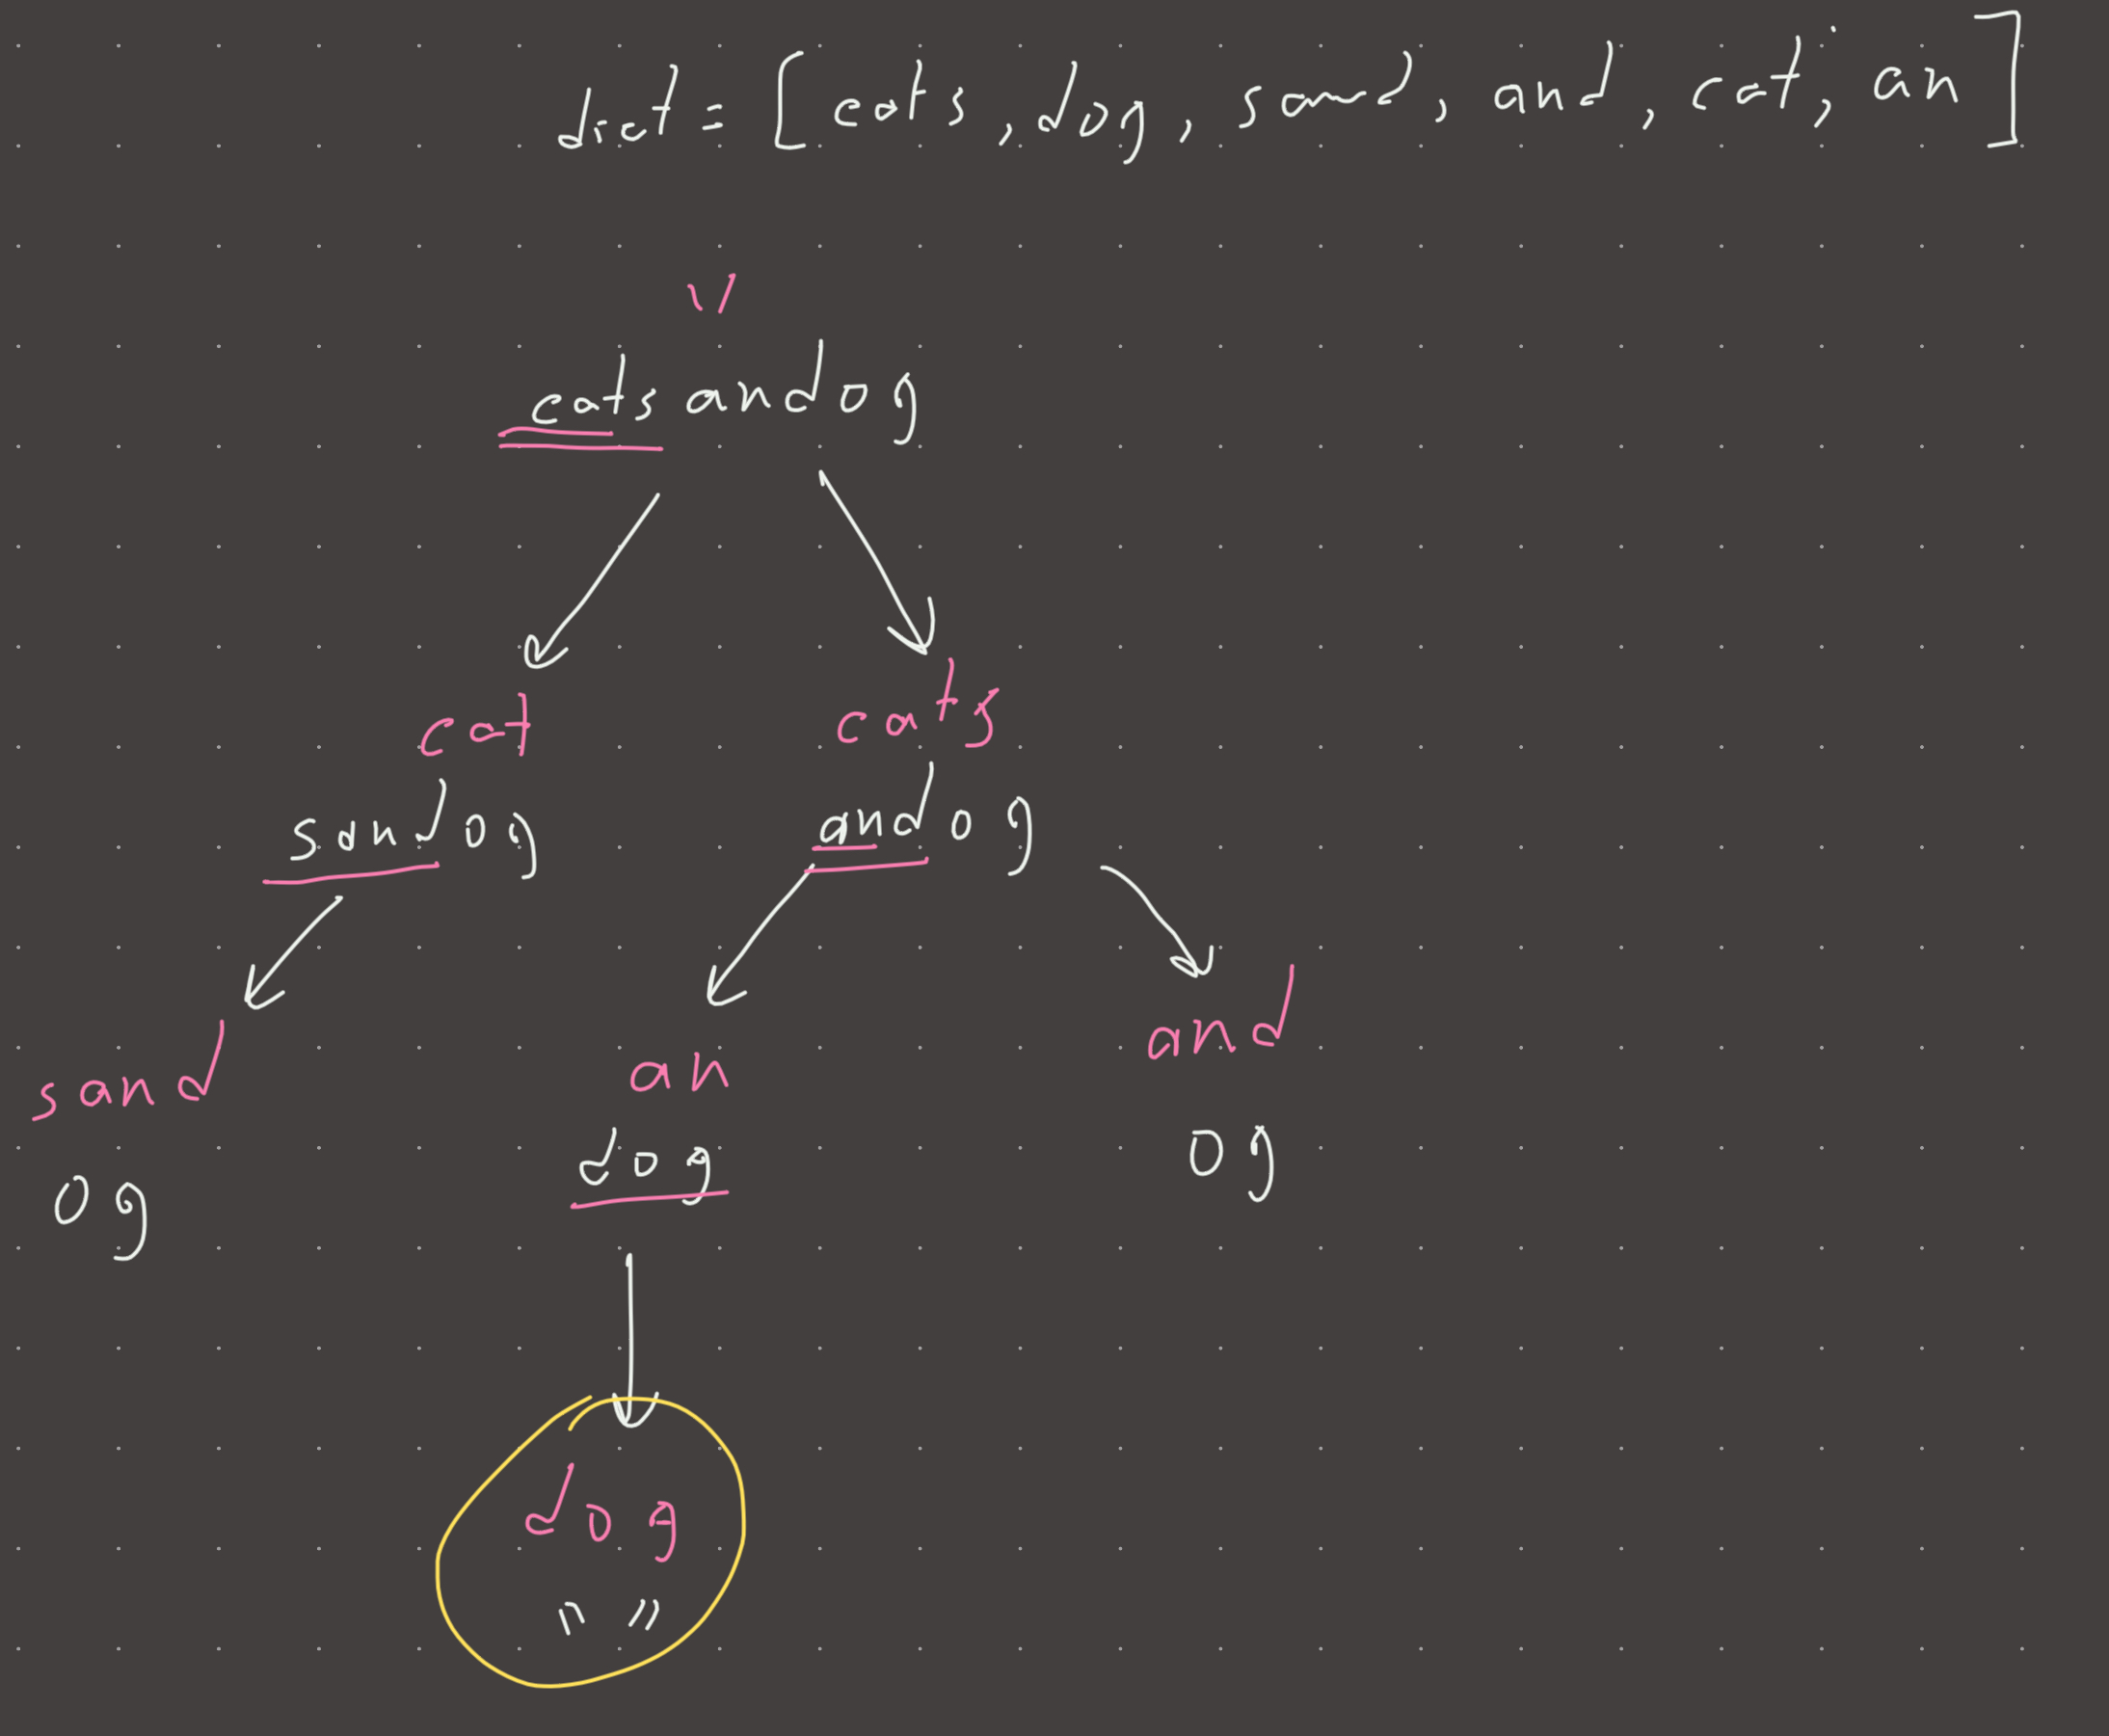 dict = [cats, dog, sand, and, cat, an]
""
catsandog
cat cats
sandog andog
sand an and
og dog og
dog
""